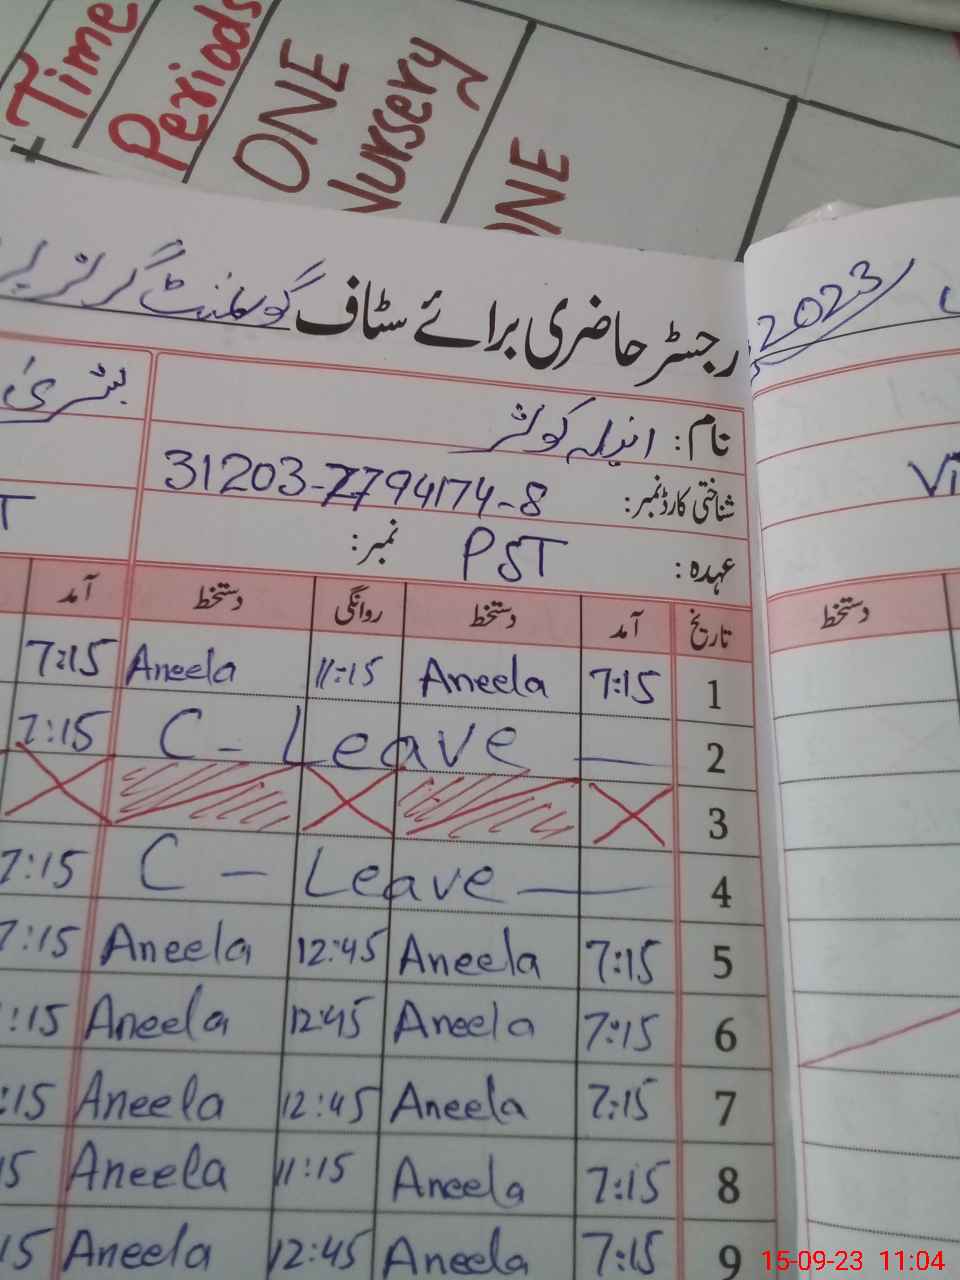 Time
Periods
ONE
Nursery
ONE
رجسٹر حاضری برائے سٹاف گورنمنٹ گرلز
2023
نام: انیلہ کوثر
بشریٰ
شناختی کارڈ نمبر: 31203-7794174-8
عہدہ: PST نمبر:
T
تاریخ آمد دستخط روانگی دستخط آمد
دستخط
1 7:15 Aneela 11:15 Aneela 7:15
2 C - Leave — 7:15
3
4 C - Leave — 7:15
5 7:15 Aneela 12:45 Aneela 7:15
6 7:15 Aneela 12:45 Aneela :15
7 7:15 Aneela 12:45 Aneela :15
8 7:15 Aneela 11:15 Aneela 15
9 7:15 Aneela 12:45 Aneela 15
15-09-23 11:04